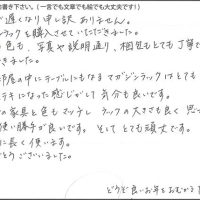 書き下さい。(一言でも文章でも絵でも大丈夫です!)
遅くなり申し訳ありません。
ラックを購入させていただきました。
色も、写真や説明通り、梱包もとても丁寧で
きました。
部屋の中にテーブルにもなるマガジンラックはとても
ステキになった感じがして気分も良いです。
の家具と色もマッチし、ラックの大きさも良く思
使い勝手が良いです。そしてとても頑丈です。
に長く使います。
とうございました。
どうぞ良いお年をおむかえ